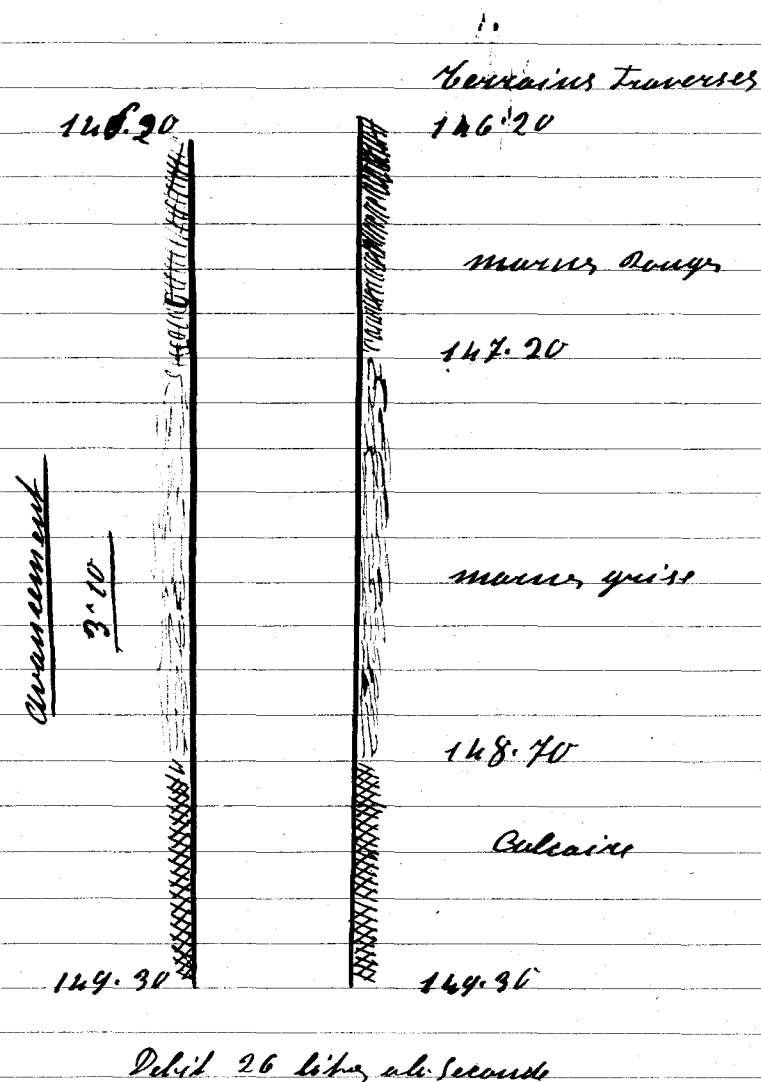 1.
Terrains Traverses
146.20 146.20
marnes Rouges
147.20
Avancement
3.10
marnes grise
148.70
Calcaire
149.30 149.30
Debit 26 litres a la Seconde